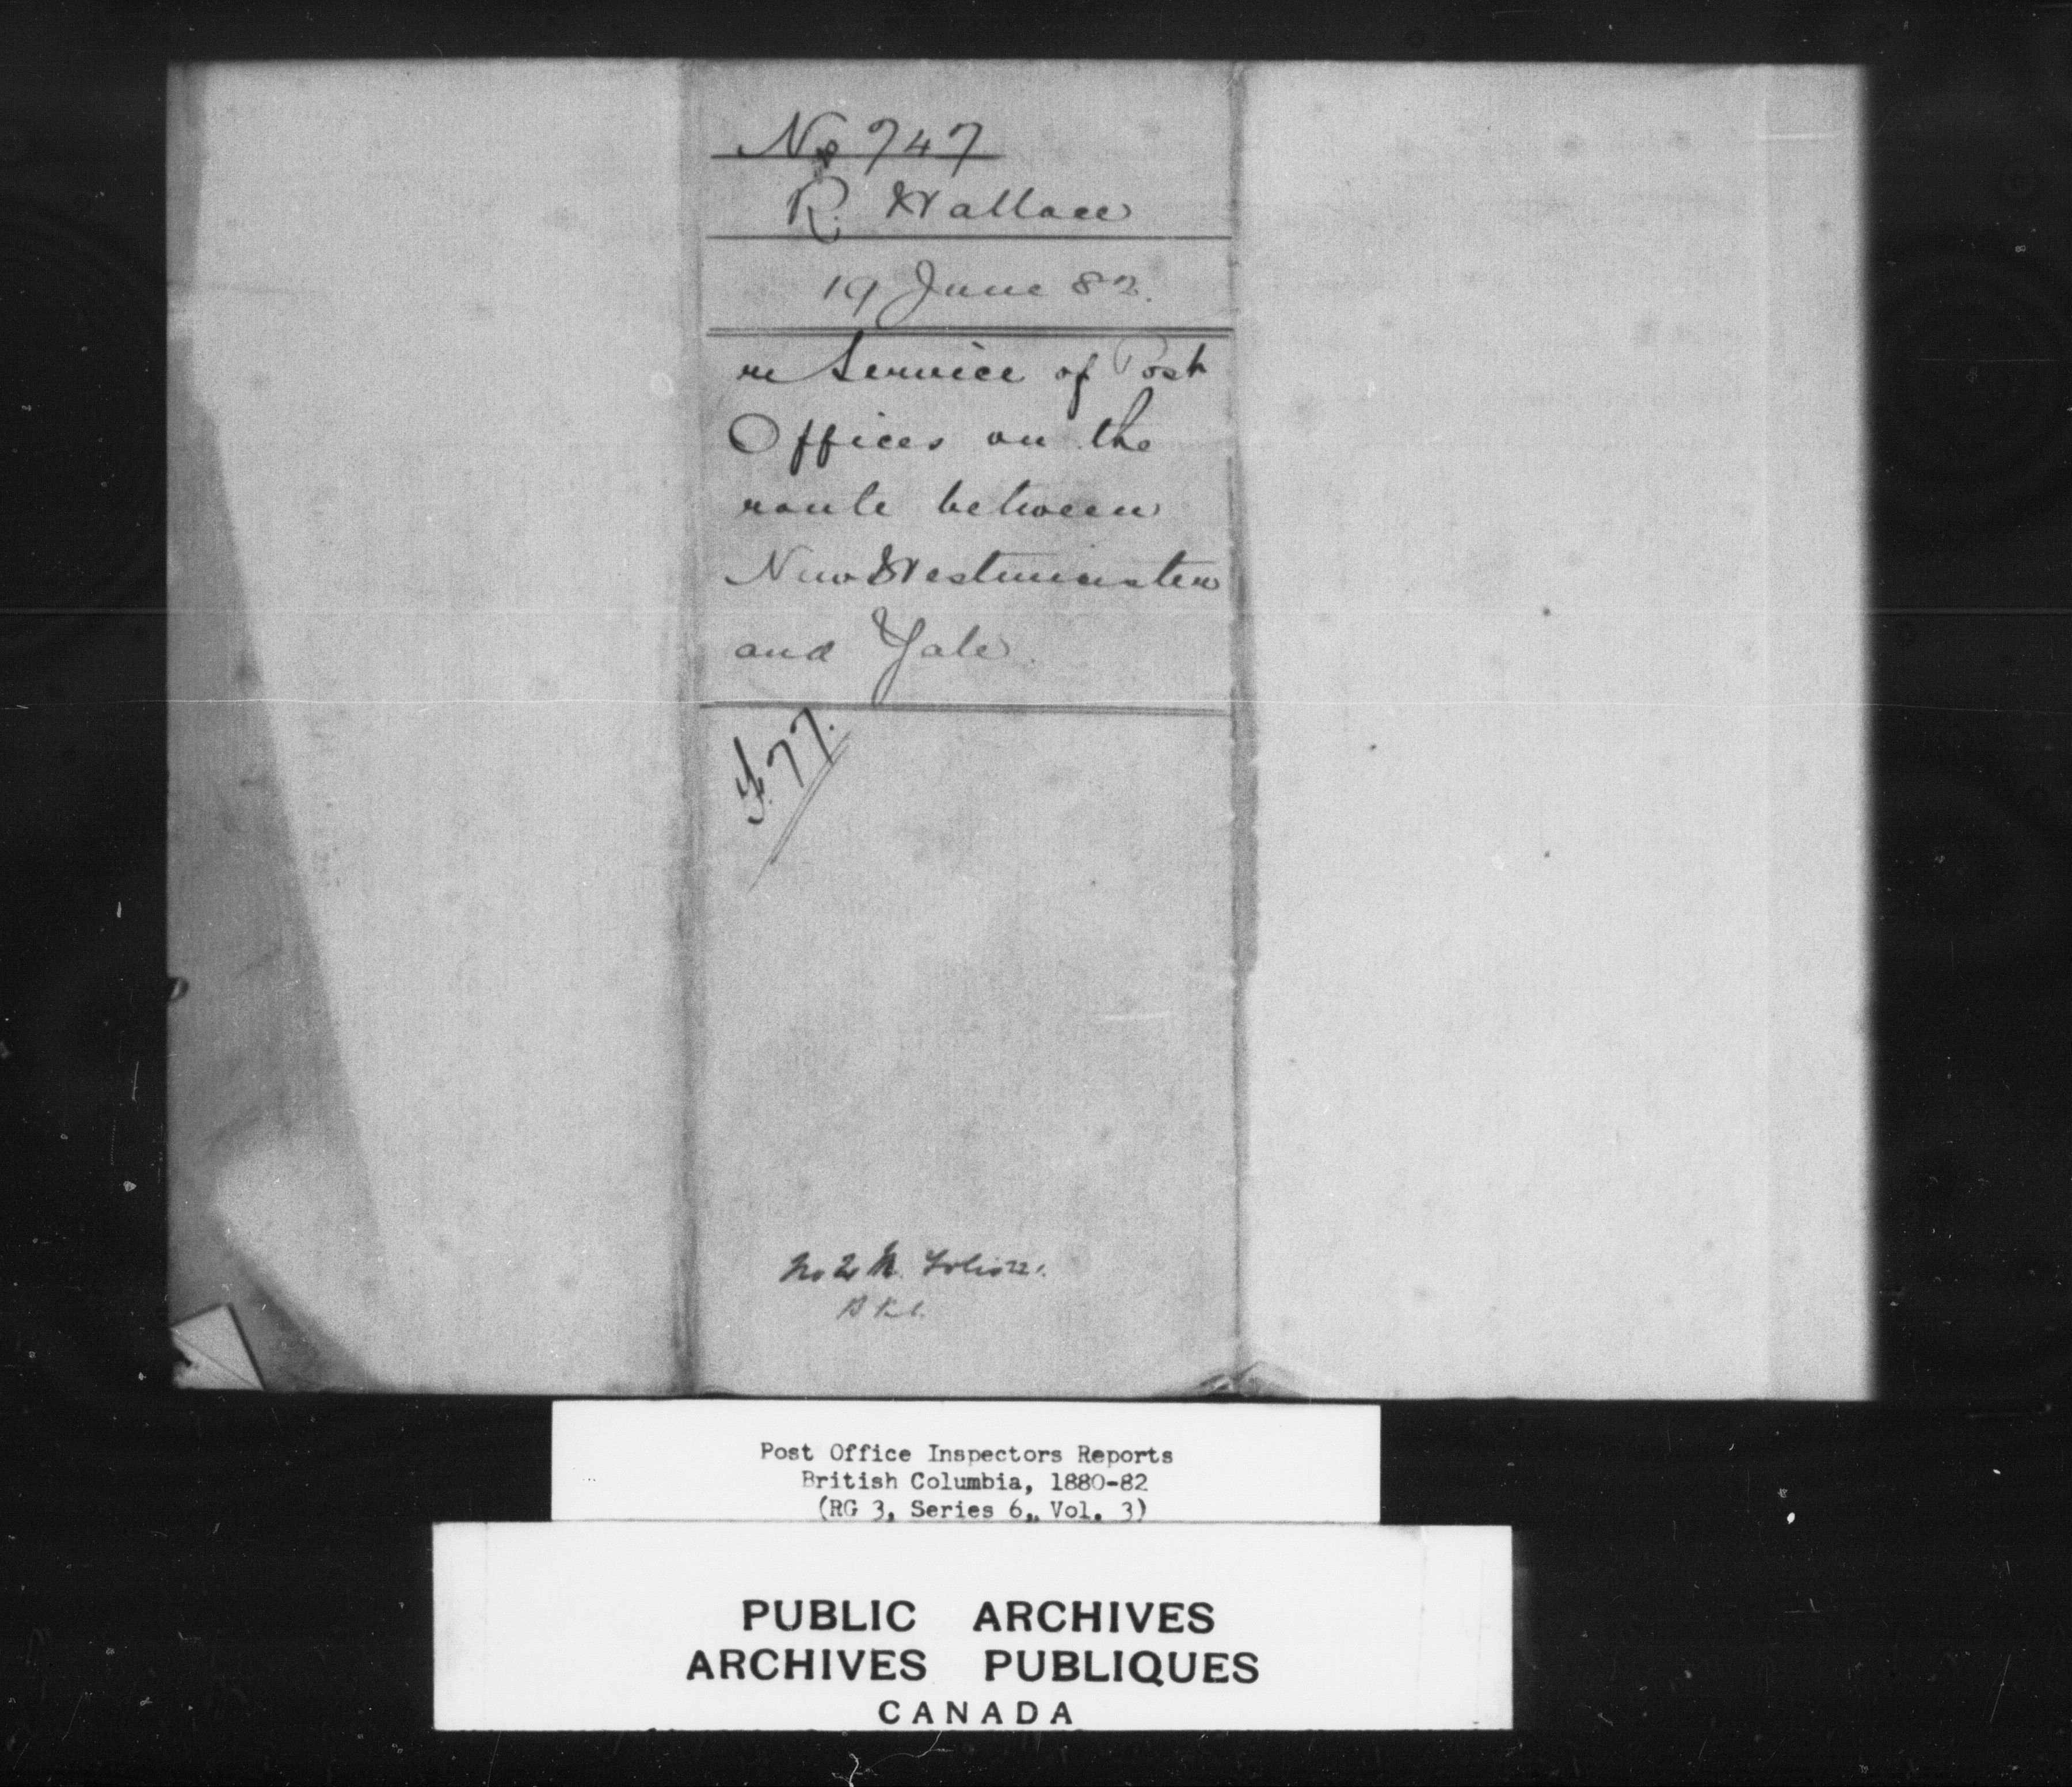 No 747
R. Wallace
19 June 82.
re Service of Post
Offices on the
route between
New Westminster
and Yale.
77.
Post Office Inspectors Reports
British Columbia, 1880-82
(RG 3, Series 6,, Vol. 3)
PUBLIC ARCHIVES
ARCHIVES PUBLIQUES
CANADA